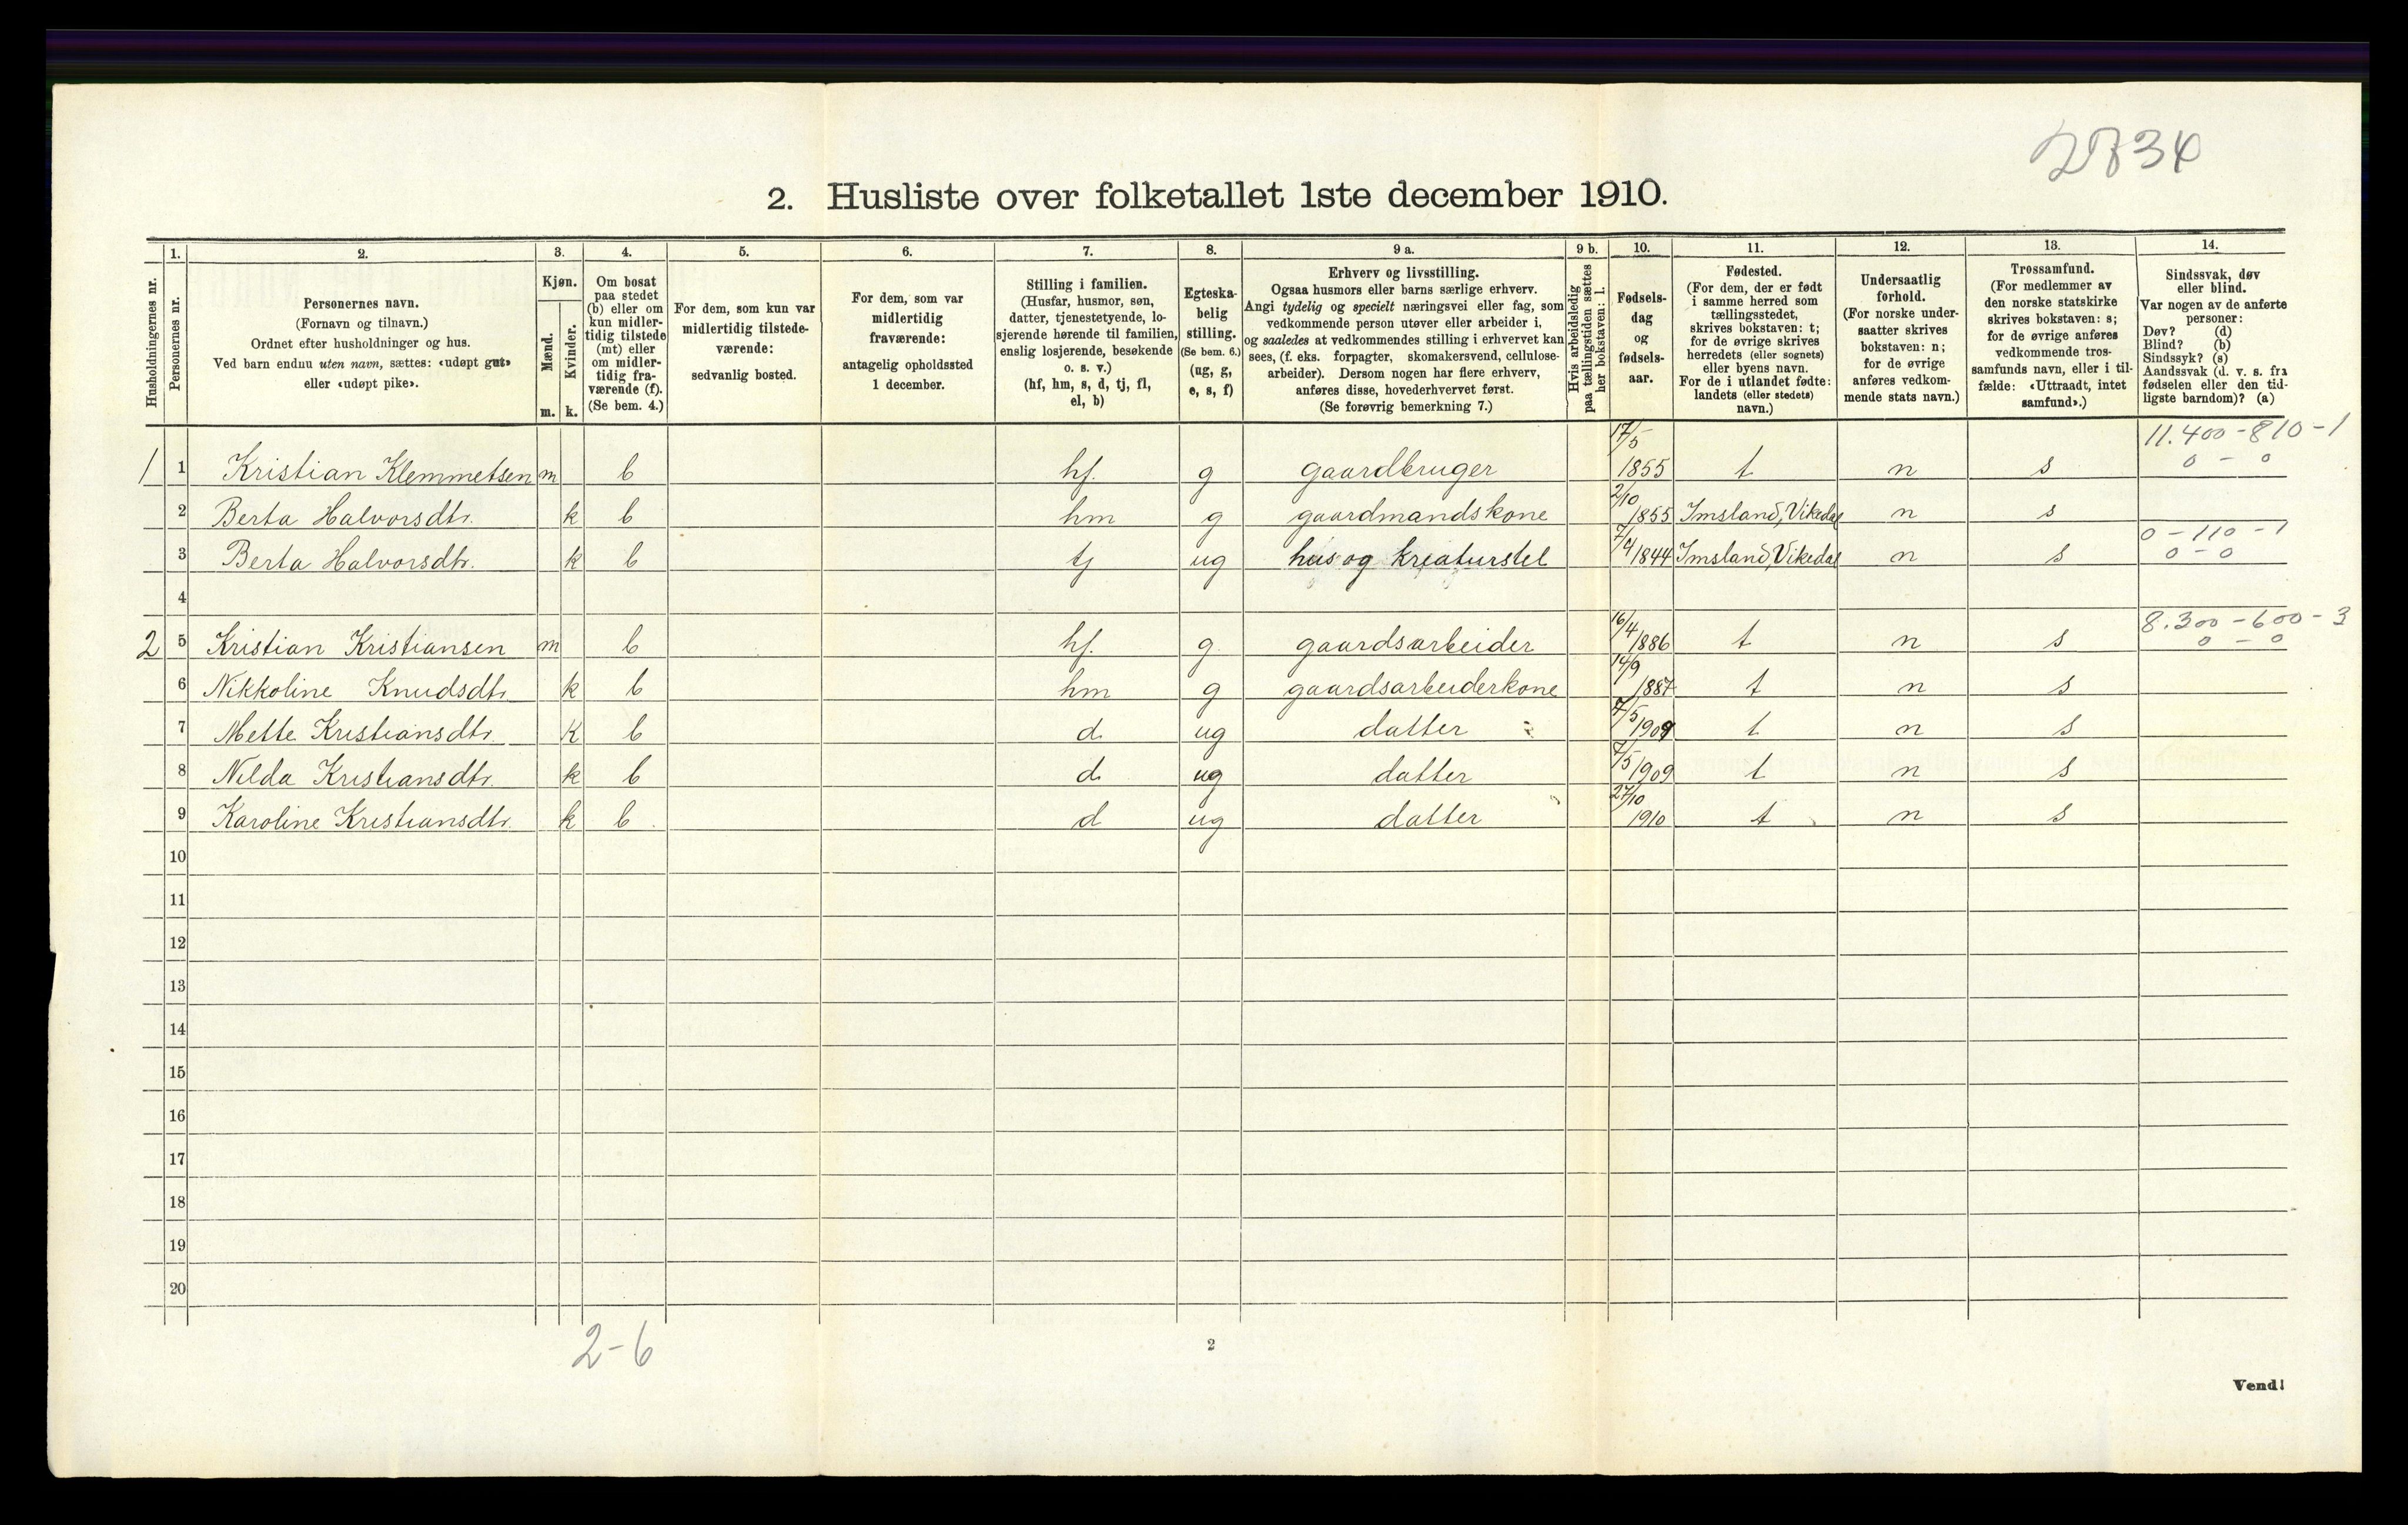 2834
2. Husliste over folketallet 1ste december 1910.
Husholdningernes nr.
1. Personernes nr.
2. Personernes navn. (Fornavn og tilnavn.) Ordnet efter husholdninger og hus. Ved barn endnu uten navn, sættes: «udøpt gut» eller «udøpt pike».
3. Kjøn. Mænd. m. Kvinder. k.
4. Om bosat paa stedet (b) eller om kun midlertidig tilstede (mt) eller om midlertidig fraværende (f). (Se bem. 4.)
5. For dem, som kun var midlertidig tilstedeværende: sedvanlig bosted.
6. For dem, som var midlertidig fraværende: antagelig opholdssted 1 december.
7. Stilling i familien. (Husfar, husmor, søn, datter, tjenestetyende, losjerende hørende til familien, enslig losjerende, besøkende o. s. v.) (hf, hm, s, d, tj, fl, el, b)
8. Egteskabelig stilling. (Se bem. 6.) (ug, g, e, s, f)
9 a. Erhverv og livsstilling. Ogsaa husmors eller barns særlige erhverv. Angi tydelig og specielt næringsvei eller fag, som vedkommende person utøver eller arbeider i, og saaledes at vedkommendes stilling i erhvervet kan sees, (f. eks. forpagter, skomakersvend, cellulosearbeider). Dersom nogen har flere erhverv, anføres disse, hovederhvervet først. (Se forøvrig bemerkning 7.)
9 b. Hvis arbeidsledig paa tællingstiden sættes her bokstaven: l.
10. Fødselsdag og fødselsaar.
11. Fødested. (For dem, der er født i samme herred som tællingsstedet, skrives bokstaven: t; for de øvrige skrives herredets (eller sognets) eller byens navn. For de i utlandet fødte: landets (eller stedets) navn.)
12. Undersaatlig forhold. (For norske undersaatter skrives bokstaven: n; for de øvrige anføres vedkommende stats navn.)
13. Trossamfund. (For medlemmer av den norske statskirke skrives bokstaven: s; for de øvrige anføres vedkommende trossamfunds navn, eller i tilfælde: «Uttraadt, intet samfund».)
14. Sindssvak, døv eller blind. Var nogen av de anførte personer: Døv? (d) Blind? (b) Sindssyk? (s) Aandssvak (d. v. s. fra fødselen eller den tidligste barndom)? (a)
1 1 Kristian Klemmetsen m b hf. g gaardbruger 17/5 1855 t n s 11.400-810-1 0-0
2 Berta Halvorsdtr. k b hm g gaardmandskone 2/10 1855 Imsland, Vikedal n s
3 Berta Halvorsdtr. k b tj ug hus og kreaturstel 7/4 1844 Imsland, Vikedal n s 0-110-1 0-0
4
2 5 Kristian Kristiansen m b hf. g gaardsarbeider 16/4 1886 t n s 8.300-600-3 0-0
6 Nikkoline Knudsdtr k b hm g gaardsarbeiderkone 14/9 1887 t n s
7 Mette Kristiansdtr k b d. ug datter 7/5 1909 t n s
8 Nilda Kristiansdtr. k b d. ug datter 7/5 1909 t n s
9 Karoline Kristiansdtr. k b d ug datter 27/10 1910 t n s
10
11
12
13
14
15
16
17
18
19
20
2-6
2
Vend!